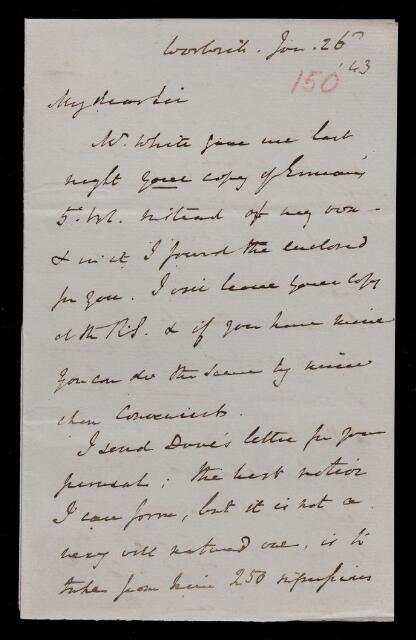 Woolwich. Jan. 26
150
'43
My dear Sir
Mr. White gave me last
night your copy of Erman's
5. vol. instead of my own -
& in it I found the enclosed
for you. I will leave your copy
at the R.S. & if you have mine
you can do the same by mine
when convenient.
I send Dove's letter for your
perusal; the best notion
I can form, but it is not a
very well matured one, is to
take from him 250 impressions